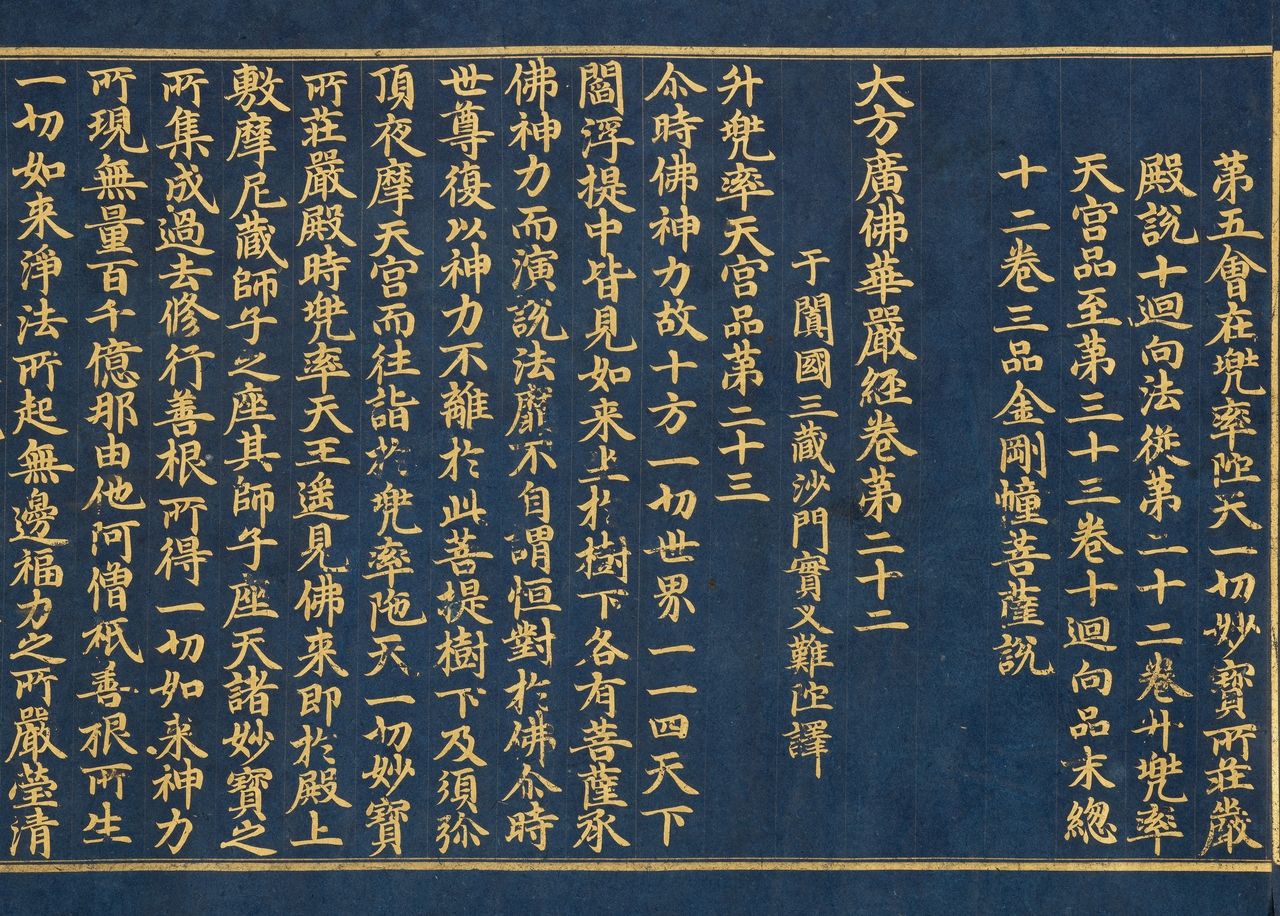 第五會在兜率陀天一切妙寶所莊嚴
殿說十迴向法從第二十二卷升兜率
天宮品至第三十三卷十迴向品末總
十二卷三品金剛幢菩薩說
大方廣佛華嚴經卷第二十二
于闐國三藏沙門實叉難陀譯
升兜率天宮品第二十三
尒時佛神力故十方一切世界一一四天下
閻浮提中皆見如来坐扵樹下各有菩薩承
佛神力而演說法靡不自謂恒對扵佛尒時
世尊復以神力不離扵此菩提樹下及須弥
頂夜摩天宮而往詣扵兜率陁天一切妙寶
所莊嚴殿時兜率天王遥見佛来即扵殿上
敷摩尼藏師子之座其師子座天諸妙寶之
所集成過去修行善根所得一切如来神力
所現無量百千億那由他阿僧祇善根所生
一切如来淨法所起無邊福力之所嚴瑩清